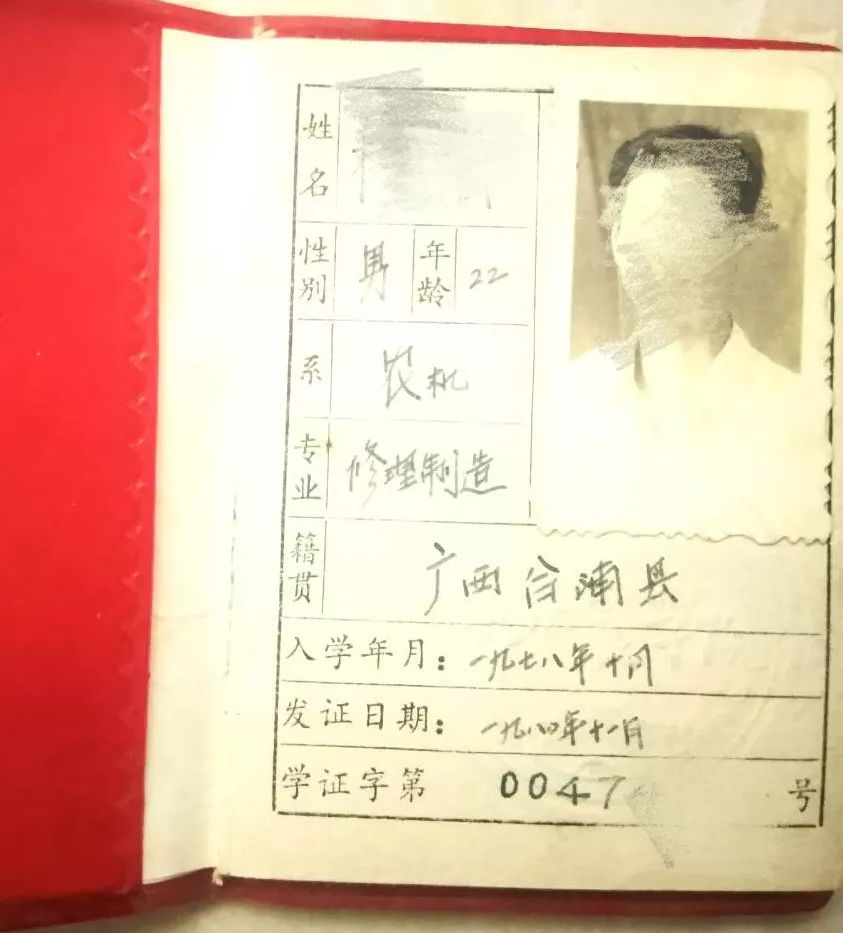 姓名
性别 男 年龄 22
系 农机
专业 修理制造
籍贯 广西合浦县
入学年月：一九七八年十月
发证日期：一九八〇年十一月
学证字第 0047 号